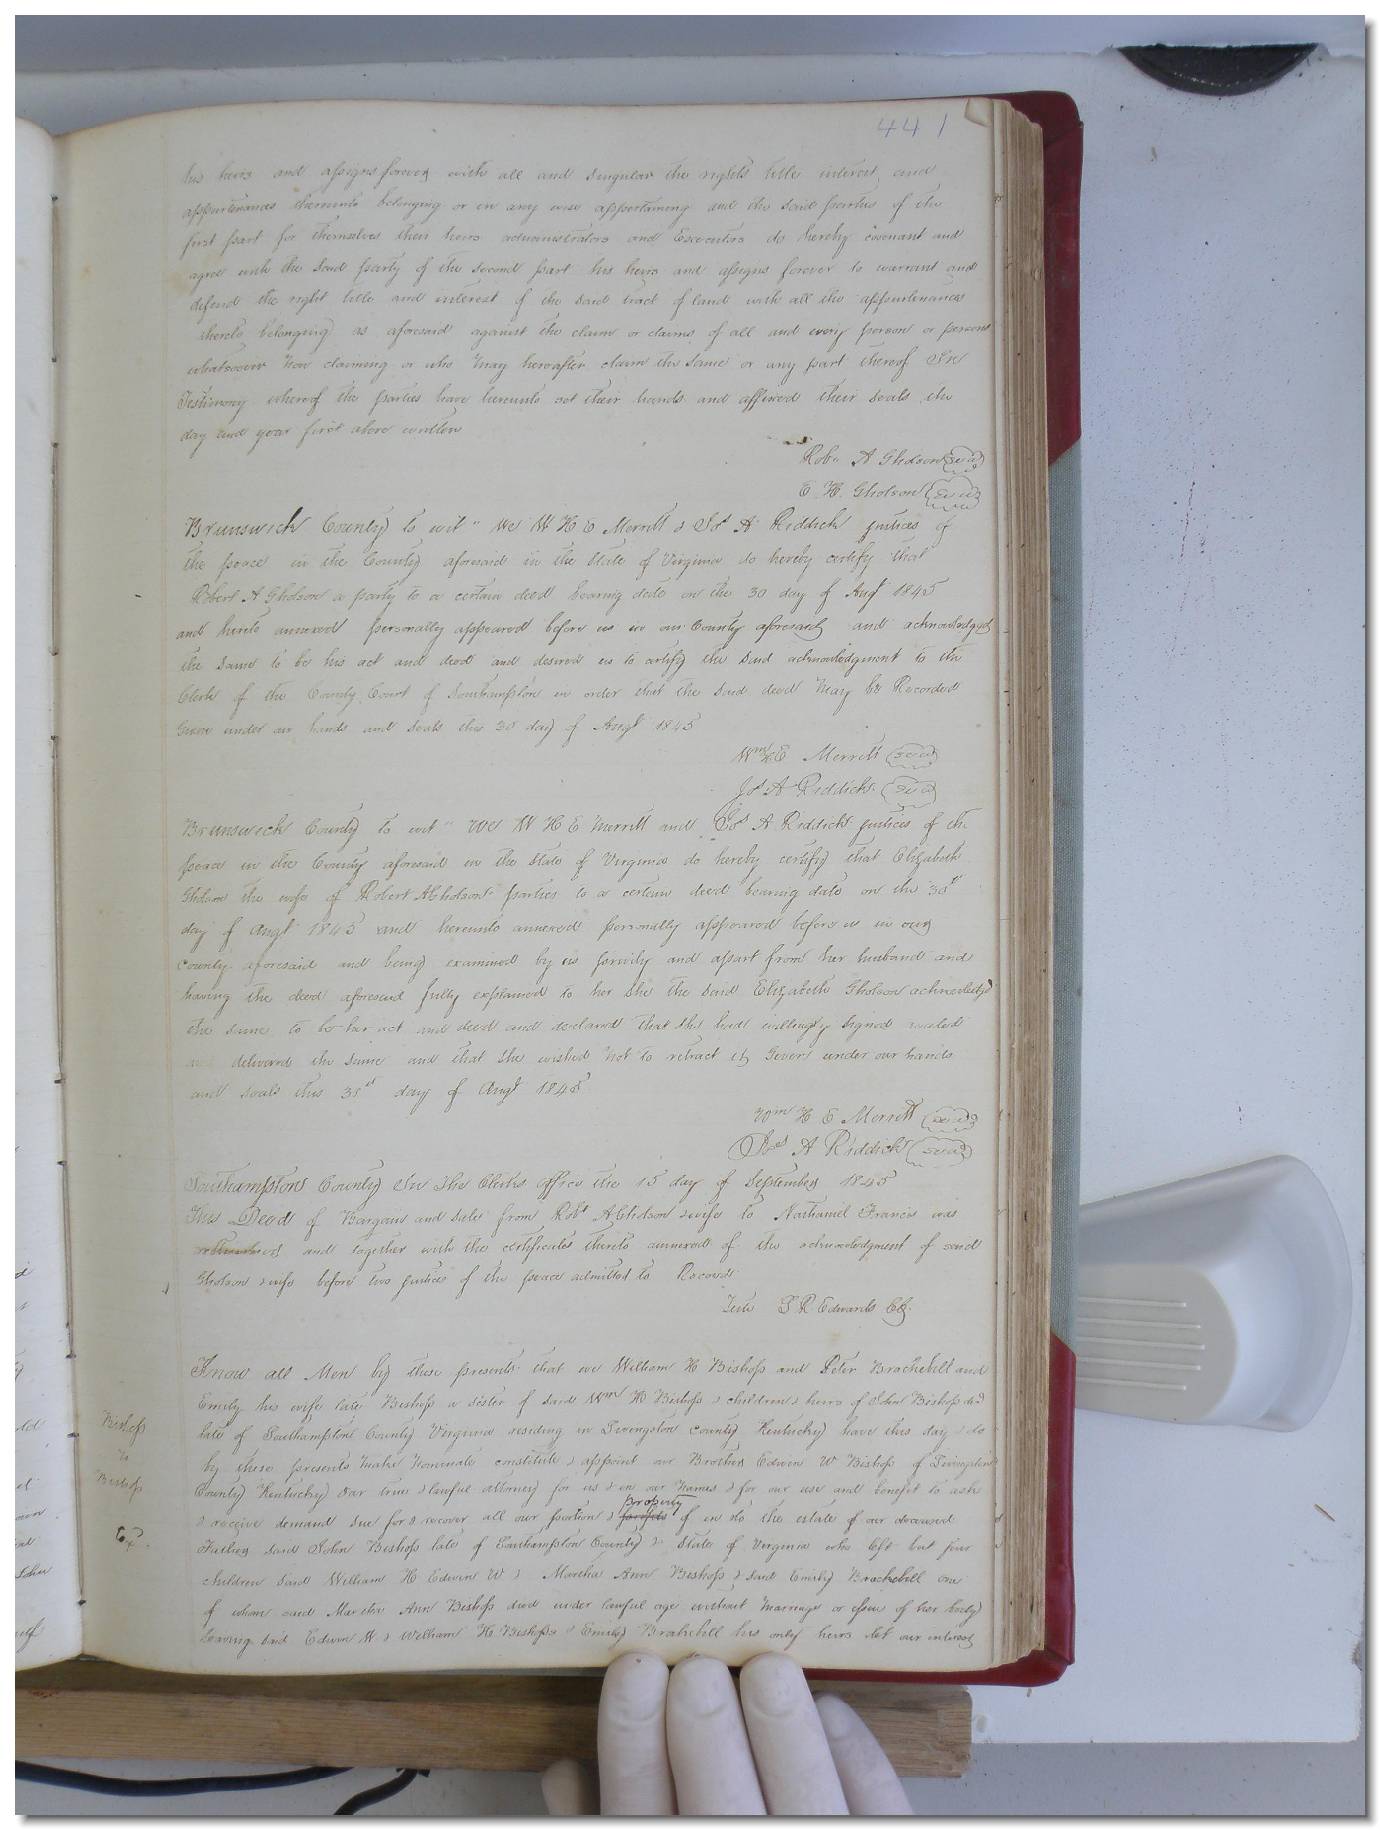 441
his heirs and assigns forever with all and singular the rights title interest and
appurtenances thereunto belonging or in any wise appertaining and the said parties of the
first part for themselves their heirs administrators and Executors do hereby covenant and
agree with the said party of the second part his heirs and assigns forever to warrant and
defend the right title and interest of the said tract of land with all the appurtenances
thereto belonging as aforesaid against the claim or claims of all and every person or persons
whatsoever now claiming or who may hereafter claim the same or any part thereof In
Testimony whereof the parties have hereunto set their hands and affixed their seals the
day and year first above written
Robt A Gholson seal
E. H. Gholson seal
Brunswick County to wit " We W H E Merritt & Jos A Riddick justices of
the peace in the County aforesaid in the State of Virginia do hereby certify that
Robert A Gholson a party to a certain deed bearing date on the 30 day of Augt 1845
and hereto annexed personally appeared before us in our County aforesaid and acknowledged
the same to be his act and deed and desired us to certify the said acknowledgment to the
Clerk of the County Court of Southampton in order that the said deed may be Recorded
Given under our hands and seals this 30 day of Augt 1845
Wm H E Merritt seal
Jos A Riddick seal
Brunswick County to wit " We W H E Merritt and Jos A Riddick justices of the
peace in the County aforesaid in the State of Virginia do hereby certify that Elizabeth
Gholson the wife of Robert A Gholson parties to a certain deed bearing date on the 30th
day of Augt 1845 and hereunto annexed personally appeared before us in our
County aforesaid and being examined by us privily and apart from her husband and
having the deed aforesaid fully explained to her she the said Elizabeth Gholson acknowledged
the same to be her act and deed and declared that she had willingly signed sealed
and delivered the same and that she wished not to retract it Given under our hands
and seals this 30st day of Augt 1845
Wm H E Merritt seal
Jos A Riddick seal
Southampton County In the Clerks office the 15 day of September 1845
This Deed of Bargain and sale from Robt A Gholson & wife to Nathaniel Francis was
and together with the certificates thereto annexed of the acknowledgment of said
Gholson & wife before two justices of the peace admitted to Record
Teste L R Edwards Clk
Know all Men by these presents that we William H Bishop and Peter Brachebill and
Emily his wife late Bishop a sister of said Wm H Bishop & children & heirs of John Bishop decd
late of Southampton County Virginia residing in Livingston County Kentucky have this day & do
by these presents make nominate constitute & appoint our Brother Edwin W Bishop of Livingston
County Kentucky our true & lawful attorney for us & in our names & for our use and benefit to ask
& receive demand sue for & recover all our portion & property of in & to the estate of our deceased
Father said John Bishop late of Southampton County & State of Virginia who left but four
children said William H Edwin W & Martha Ann Bishop & said Emily Brachebill one
of whom said Martha Ann Bishop died under lawful age without marriage or issue of her body
leaving said Edwin W & William H Bishop & Emily Brachebill his only heirs let our interest
Bishop
to
Bishop